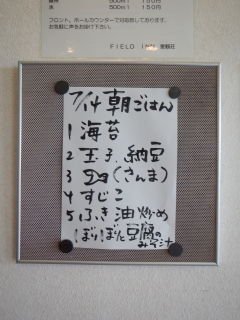 水 500ml 150円
フロント、ホールカウンターで対応致しております。
お気軽に声をお掛け下さい。
FIELD
7/14 朝ごはん
1 海苔
2 玉子、納豆
3 (さんま)
4 すじこ
5 ふき油炒め
ぼりぼりと豆腐のみそ汁